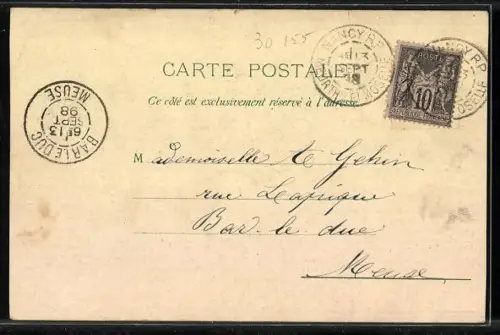 30 155
CARTE POSTALE
Ce côté est exclusivement réservé à l'adresse.
NANCY R.P.
13
SEPT
98
MEURTHE MOSELLE
POSTES
10
BAR LE DUC
6E 13
SEPT
98
MEUSE
Mademoiselle Gehin
rue
Bar-le-duc
Meuse